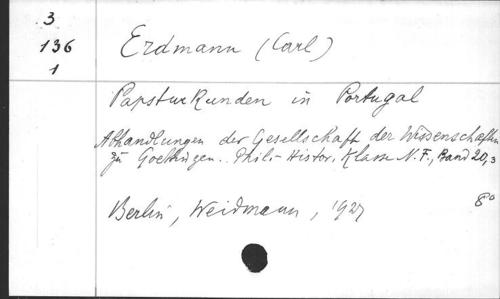 3
136
1
Erdmann (Carl)
Papsturkunden in Portugal
Abhandlungen der Gesellschaft der Wissenschaften
zu Goettingen.. Phil.-Histor. Klasse N.F., Band 20,3
Berlin, Weidmann, 1927
8°